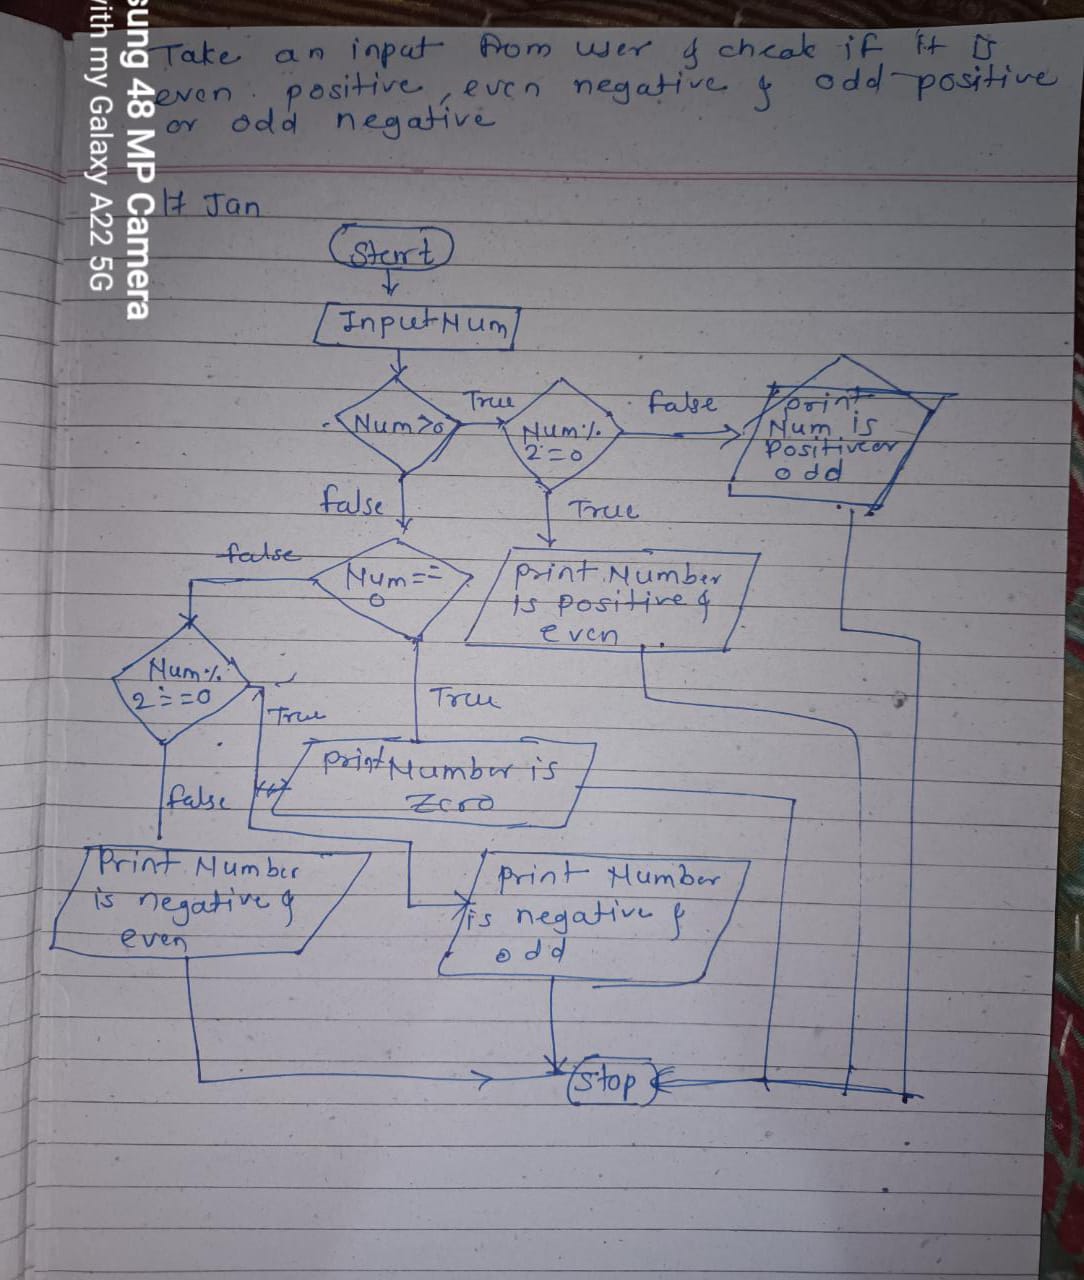 Take an input from user & cheak if it is
even positive, even negative & odd positive
or odd negative
17 Jan
Start
Input Num
Num>0
True
Num%
2==0
false
print
Num is
Positive or
odd
false
True
false
Num==
0
print Number
is positive &
even
Num%
2==0
True
True
print Number is
Zero
false
Print Number
is negative &
even
print Number
is negative &
odd
Stop
sung 48 MP Camera
with my Galaxy A22 5G